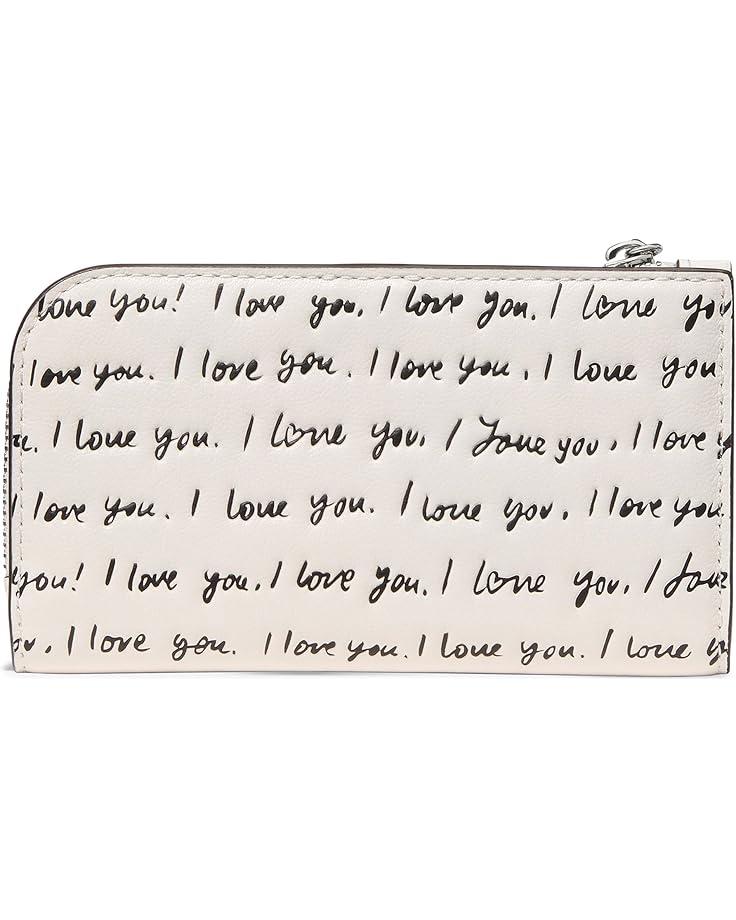 love you! I love you. I love you. I love you
I love you. I love you. I love you. I love you
I love you. I love you. I love you. I love y
I love you. I love you. I love you. I love you
you! I love you. I love you. I love you. I love
I love you. I love you. I love you. I love y